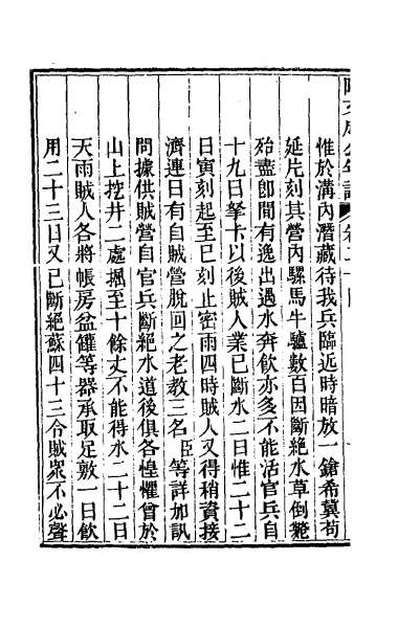 阿文成公年譜 卷二十
惟於溝內潛藏待我兵臨近時暗放一鎗希冀苟
延片刻其營內騾馬牛驢數百因斷絕水草倒斃
殆盡卽間有逸出遇水奔飲亦多不能活官兵自
十九日拏卡以後賊人業已斷水二日惟二十二
日寅刻起至巳刻止密雨四時賊人又得稍資接
濟連日有自賊營脫回之老教三名臣等詳加訊
問據供賊營自官兵斷絕水道後俱各惶懼曾於
山上挖井二處掘至十餘丈不能得水二十二日
天雨賊人各將帳房盆鑵等器承取足敷一日飲
用二十三日又已斷絕蘇四十三令賊眾不必聲